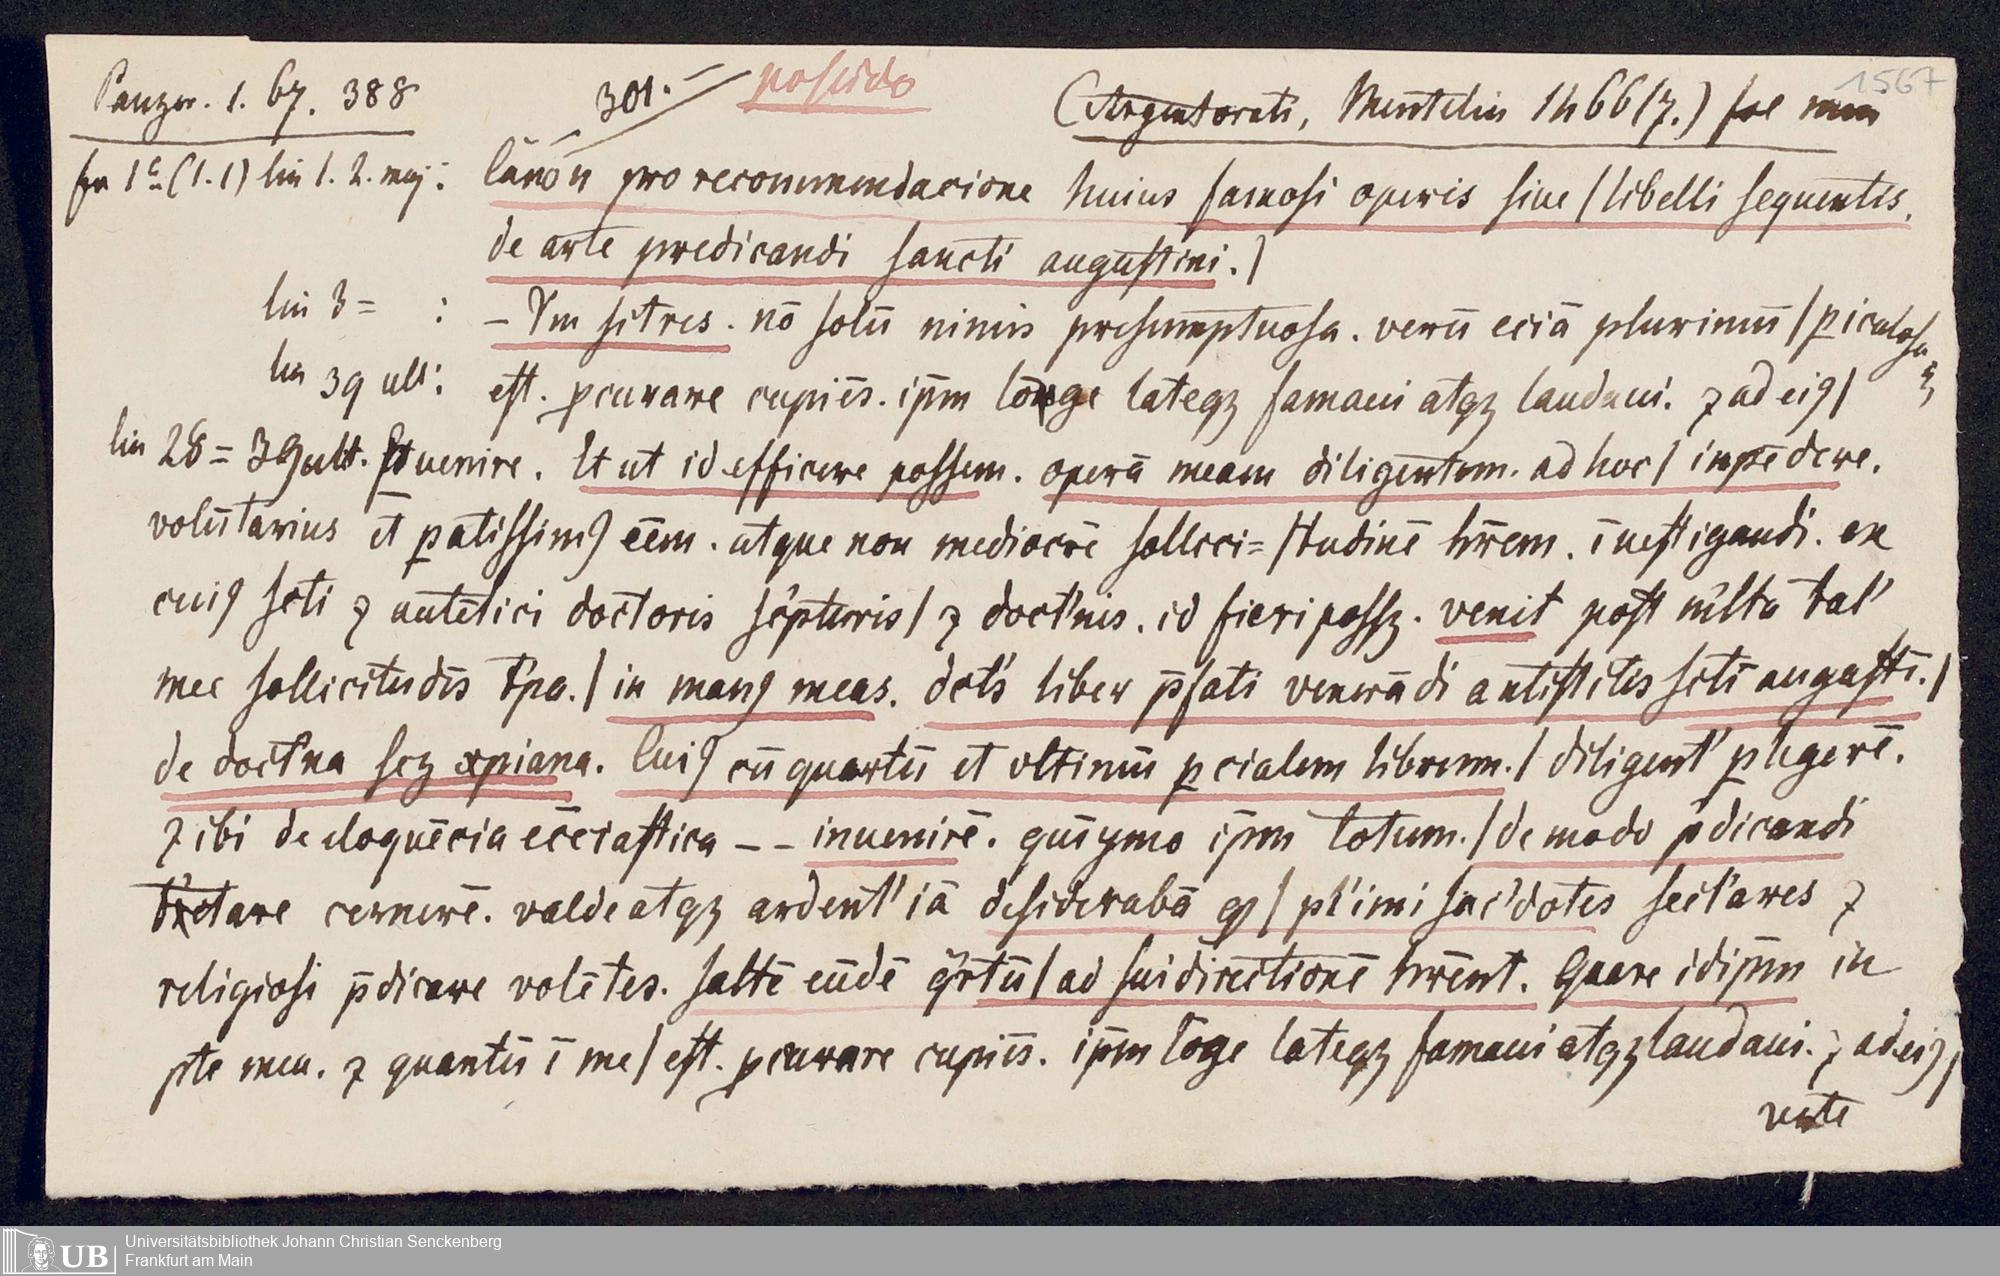 Panzer. 1. 67. 388 301. possideo (Argentorati, Mentelin 1466(7.) fol min 1567
fra 1ᵃ (1.1) lin 1. 2. maj: Canon pro recommendacione huius famosi operis siue / libelli sequentis.
de arte predicandi sancti augustini. /
lin 3 = : – Vm sitres. nō solū nimis presumptuosa. verū eciā plurimū / piculosa
lin 39 ult: est. pcurare cupiēs. ip̄m lōge lateqz famaui atqz laudaui. ⁊ ad ei9 /
lin 28 = 39 ult. uenire. Et ut id efficere possem. operā meam diligentem. ad hoc / inpēdere.
volūtarius et patissim9 eēm. atque non mediocrē sollici= / tudinē hr̄em. īuestigandi. ex
cui9 scti ⁊ autētici doctoris sc'pturis / ⁊ doct'nis. id fieri possz. venit post m̄lta tal'
mee sollicitudīs t'pa. / in man9 meas. dct's liber p̄fati venerādi antistitis scti augustī. /
de doct'na scz xpiana. Cui9 cū quartū et vltimū pcialem librum. / diligent' plegerē.
⁊ ibi de eloquēcia ecc̄iastica – – inuenirē. quīymo ip̄m totum. / de modo p̄dicandi
t'ctare cernerē. valde atqz ardent' iā desiderabā qp / pl'imi sac'dotes sect'ares ⁊
religiosi p̄dicare volētes. saltē eūdē q̄rtū / ad sui directionē hr̄ent. Quare id ip̄m in
pte mea. ⁊ quantū ī me / est. pcurare cupiēs. ip̄m lōge lateqz famaui atqz laudaui. ⁊ ad ei9 /
verte
UB Universitätsbibliothek Johann Christian Senckenberg
Frankfurt am Main